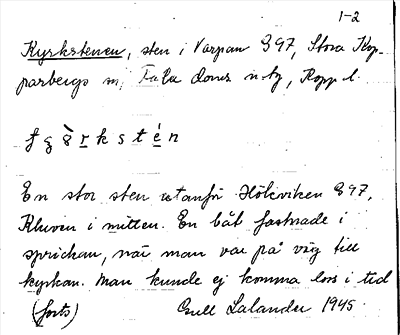 1-2
Kyrkstenen, sten i Varpan 897, Stora Kop-
parbergs sn, Falu doms n-tg, Kopp l.
En stor sten utanför Hökviken 897,
Kluven i mitten. En båt fastnade i
sprickan, när man var på väg till
kyrkan. Man kunde ej komma loss i tid
(forts) Gull Lalander 1945.